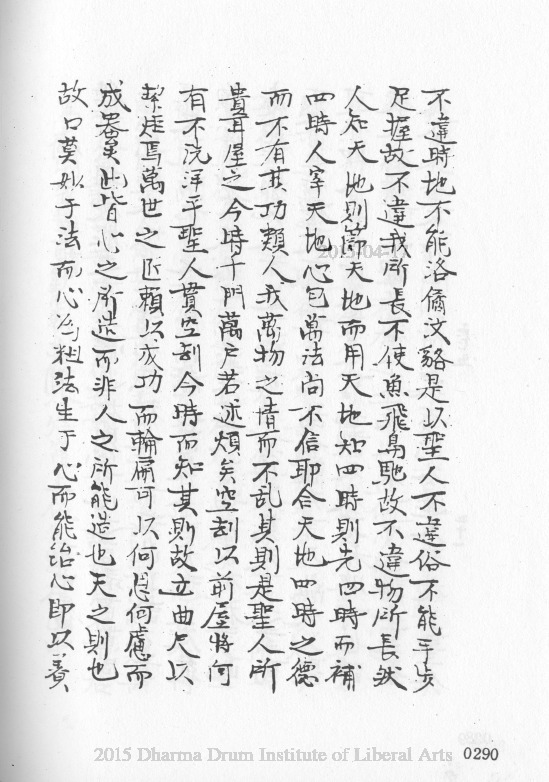 不違時地不能洛僑汶貉是以聖人不違俗不能手步
足握故不違我所長不使魚飛鳥馳故不違物所長然
人知天地則節天地而用天地知四時則先四時而補
四時人宰天地心包萬法尚不信耶合天地四時之德
而不有其功類人我萬物之情而不乱其則是聖人所
貴耳屋之今時千門萬户若述煩矣空刦以前屋將何
有不洸洋乎聖人貫空刦今時而知其則故立曲尺以
絜矩焉萬世之匠賴以成功而輪扁可以何思何慮而
成器矣此皆心之所造而非人之所能造也天之則也
故曰莫妙于法而心為粗法生于心而能治心即以養
2015/04/17
2015 Dharma Drum Institute of Liberal Arts
0290